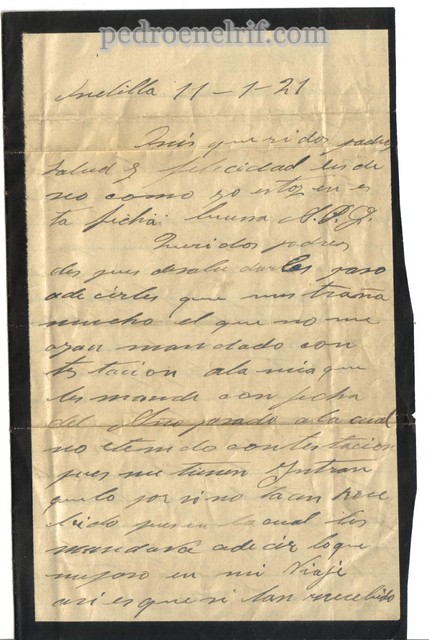 pedroenelrif.com
Melilla 11-1-21
Mis queridos padres
salud y felicidad les de
seo como yo estoy en es
ta ficha buena A.D.G.
Queridos padres
des pues desaludarles paso
adecirles que mestraña
mucho el que no me
ayan mandado con
testacion ala mia que
les mande con ficha
del pasado ala cual
no etenido contestacion
pues me tienen Intran
quilo por sino laan Rece
bido pues en lacual les
mandava adecir loque
mepaso en mi Viaje
asi es que si lan rrecebido